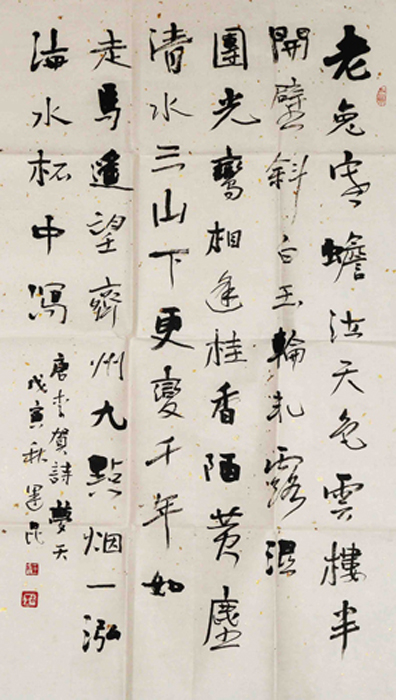 老兔寒蟾泣天色雲樓半
開壁斜白玉輪軋露濕
團光鸞相逢桂香陌黄塵
清水三山下更變千年如
走馬遥望齊州九點烟一泓
海水杯中瀉
唐李賀詩夢天
戊寅秋